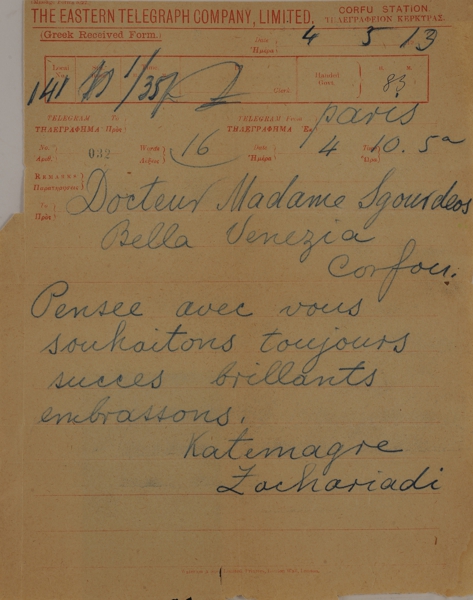 THE EASTERN TELEGRAPH COMPANY, LIMITED.
CORFU STATION.
ΤΗΛΕΓΡΑΦΕΙΟΝ ΚΕΡΚΥΡΑΣ.
(Greek Received Form.)
Date
Ἡμέρα
4 5 13
Handed
141 1/35
paris
TELEGRAM To
ΤΗΛΕΓΡΑΦΗΜΑ Πρὸς
TELEGRAM From
ΤΗΛΕΓΡΑΦΗΜΑ Ἐκ
No.
Ἀριθ.
032
Words
16
Date
Ἡμέρα
4
10. 5
REMARKS
To
Πρὸς
Docteur Madame Sgourdeos
Bella Venezia
Corfou.
Pensee avec vous
souhaitons toujours
succes brillants
embrassons.
Katemagre
Zachariadi